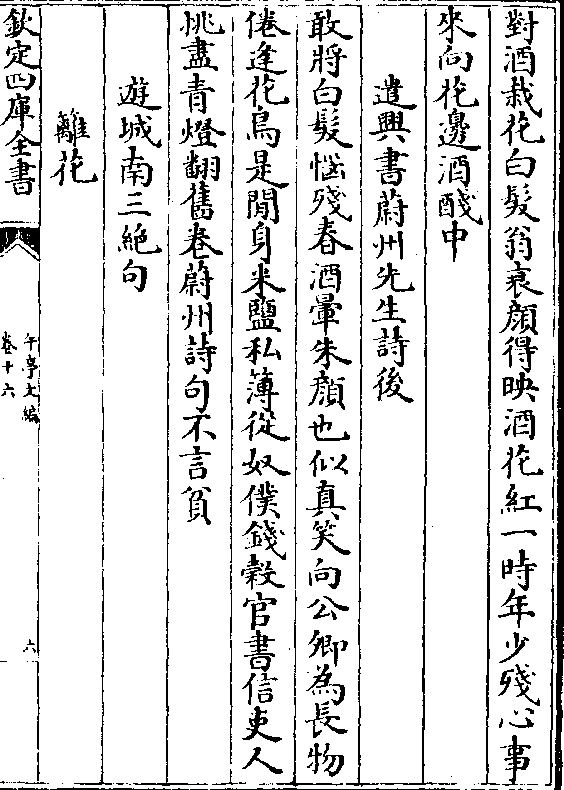 對酒栽花白髮翁衰顔得映酒花紅一時年少殘心事
來向花邊酒醆中
遣興書蔚州先生詩後
敢將白髮惱殘春酒暈朱顔也似真笑向公卿為長物
倦逢花鳥是閒身米鹽私簿從奴僕錢穀官書信吏人
挑盡青燈翻舊卷蔚州詩句不言貧
遊城南三絶句
離花
欽定四庫全書
午亭文編
卷十六
六